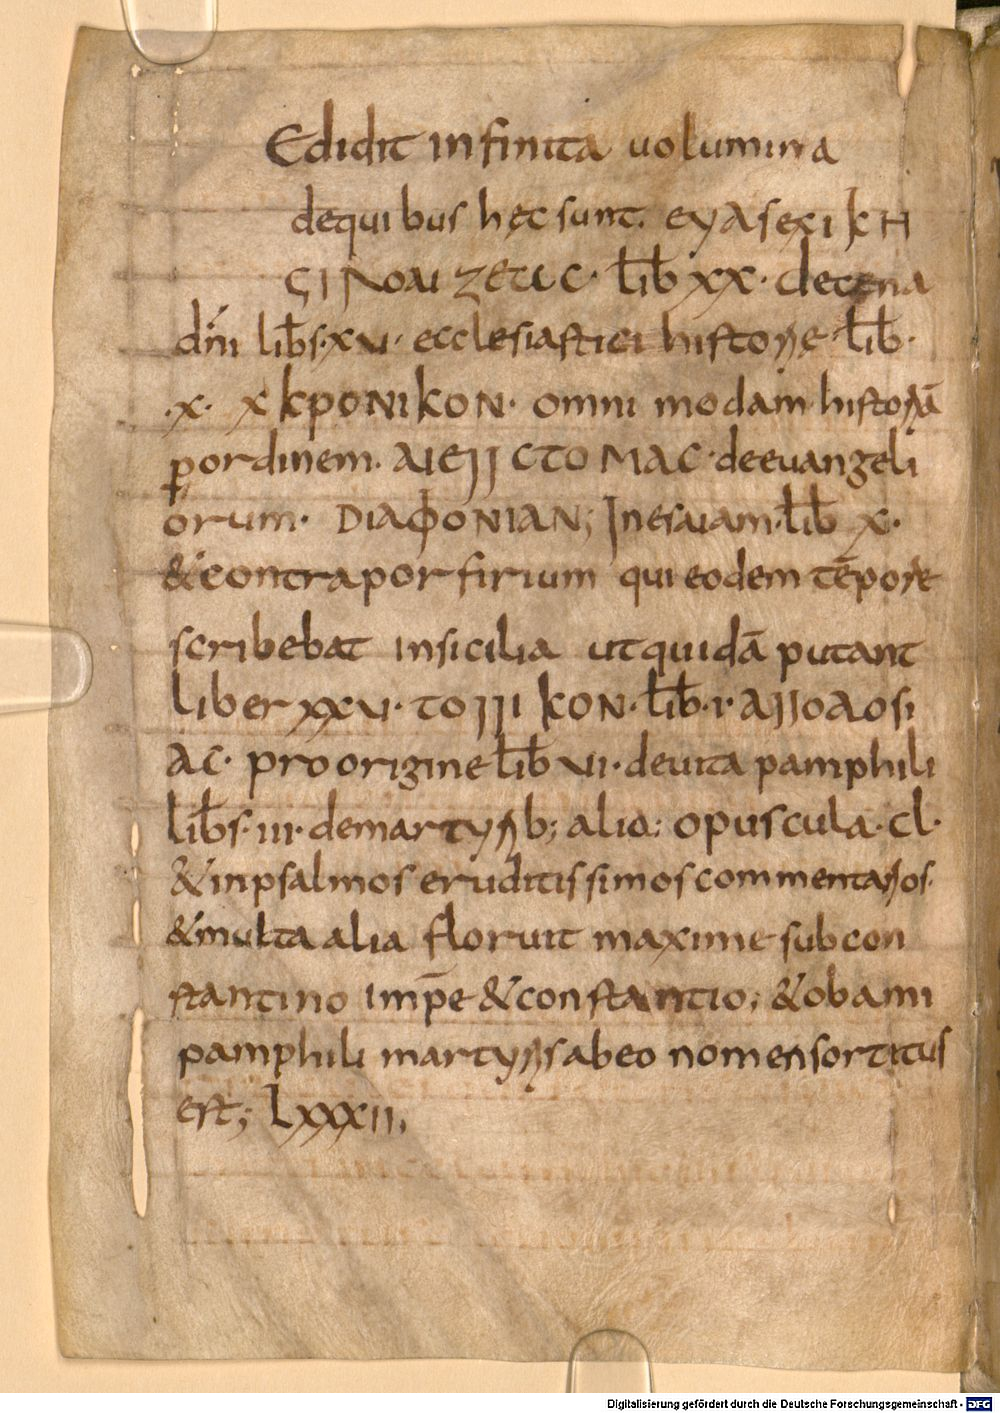 Edidit infinita uolumina
dequibus hęc sunt. eyaseχi kH
ςi Noai zetic· lib̄ xx· de tena
dn̄i lib̄s·xv· ecclesiastici historię lib̄·
·x· xkPONIkON· omni modam historiā
ꝑordinem· AIEJJ CTO MAC· deeuangeli
orum· DIAΦONIAN; Inesaiam·lib̄ x·
&contraporfirium qui eodem tēpore
scribebat insicilia ut quidā putant
liber xxv· toJJi kON·lib̄·i· AJJOAOSI
AC· proorigine lib̄ vi· deuita pamphili
lib̄s·iii· demartyrib; alia: opuscula·cl·
&inpsalmos eruditissimos commentarios·
&multa alia floruit maxime sub con
stantino imp̄e &constantio; &obami
pamphili martyris abeo nomen sortitus
est; Lxxxii,
Digitalisierung gefördert durch die Deutsche Forschungsgemeinschaft - DFG